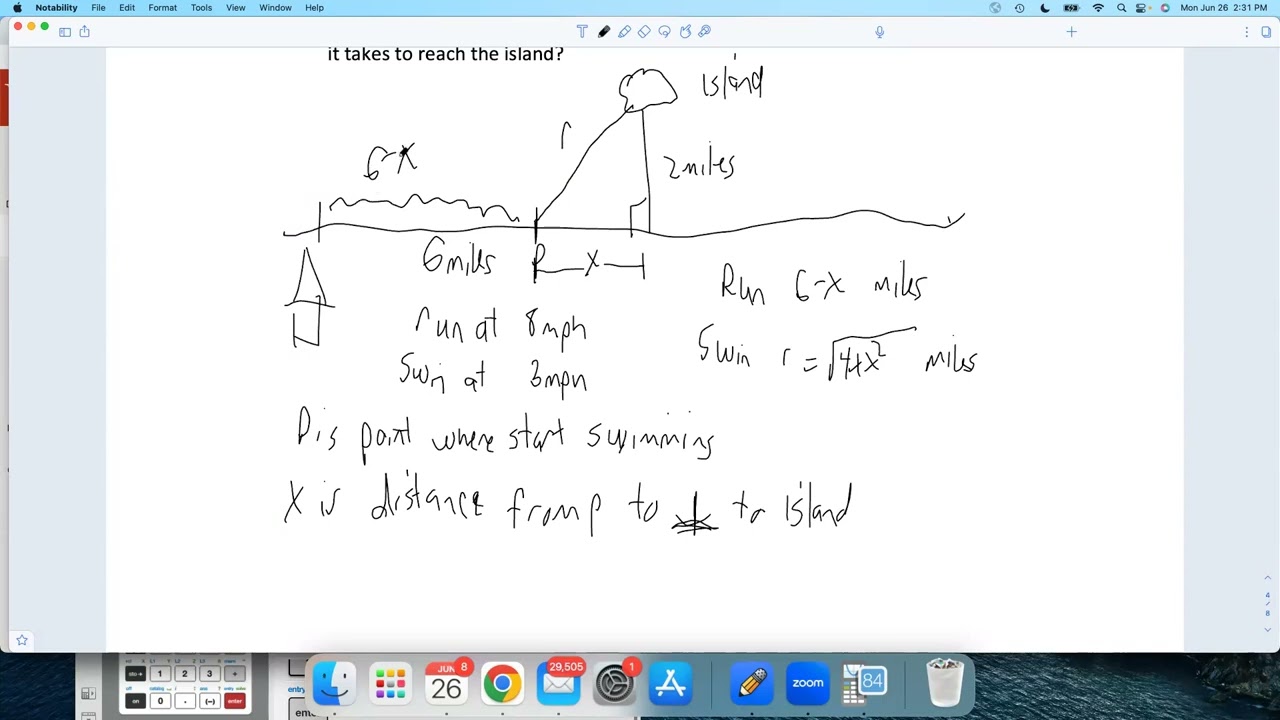 Notability File Edit Format Tools View Window Help
Mon Jun 26 2:31 PM
it takes to reach the island?
island
r
6-x
2 miles
6 miles
P
x
Run 6-x miles
run at 8mph
Swim r = √4+x² miles
Swim at 3mph
P is point where start swimming
X is distance from p to ⊥ to island
4
/
8
JUN
8
26
29,505
1
zoom
84
sto→ 1 2 3 +
on 0 . (-) enter
entry
ente